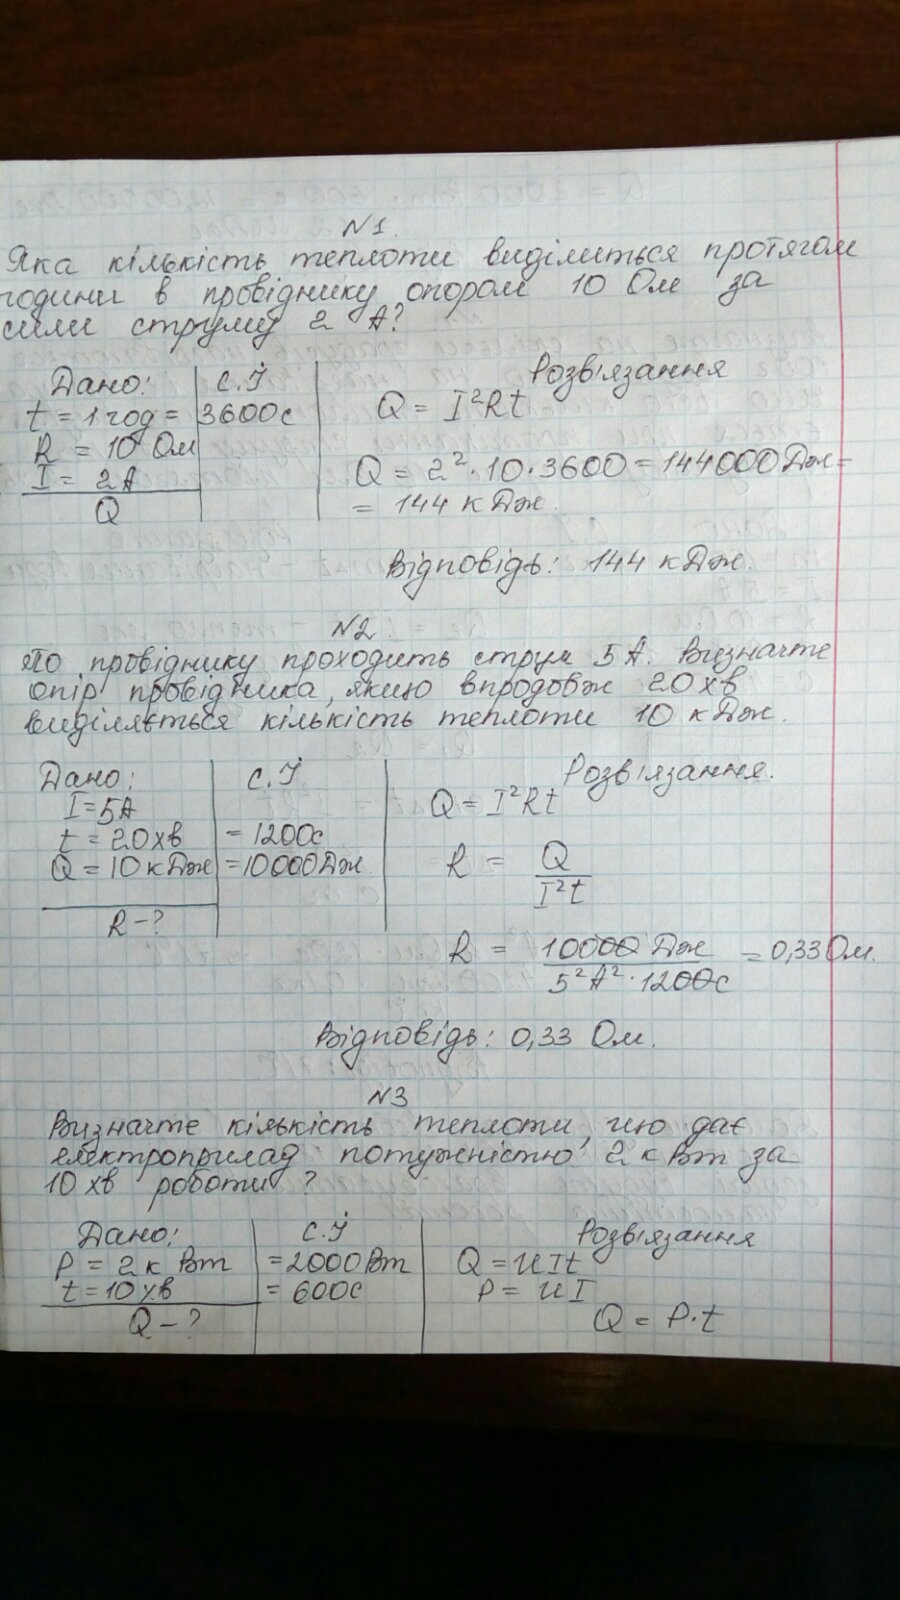 №1.
Яка кількість теплоти виділиться протягом
години в провіднику опором 10 Ом за
сили струму 2 А?
Дано: С.І Розв'язання
t = 1 год = 3600с Q = I²Rt
R = 10 Ом
I = 2А Q = 2²·10·3600 = 144000 Дж =
Q = 144 кДж.
Відповідь: 144 кДж.
№2.
По провіднику проходить струм 5А. Визначте
опір провідника, якщо впродовж 20хв
виділяється кількість теплоти 10 кДж.
Дано: С.І Розв'язання.
I = 5А Q = I²Rt
t = 20хв = 1200с
Q = 10 кДж = 10000Дж R = Q / I²t
R - ?
R = 10000 Дж / 5²А²·1200с = 0,33 Ом.
Відповідь: 0,33 Ом.
№3
Визначте кількість теплоти, що дає
електроприлад потужністю 2 кВт за
10 хв роботи?
Дано: С.І Розв'язання
P = 2 кВт = 2000Вт Q = UIt
t = 10хв = 600с P = UI
Q - ? Q = P·t